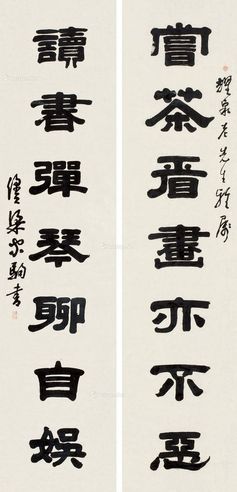 耀泉老先生雅屬
嘗茶看畫亦不惡
讀書彈琴聊自娛
梁家駒書